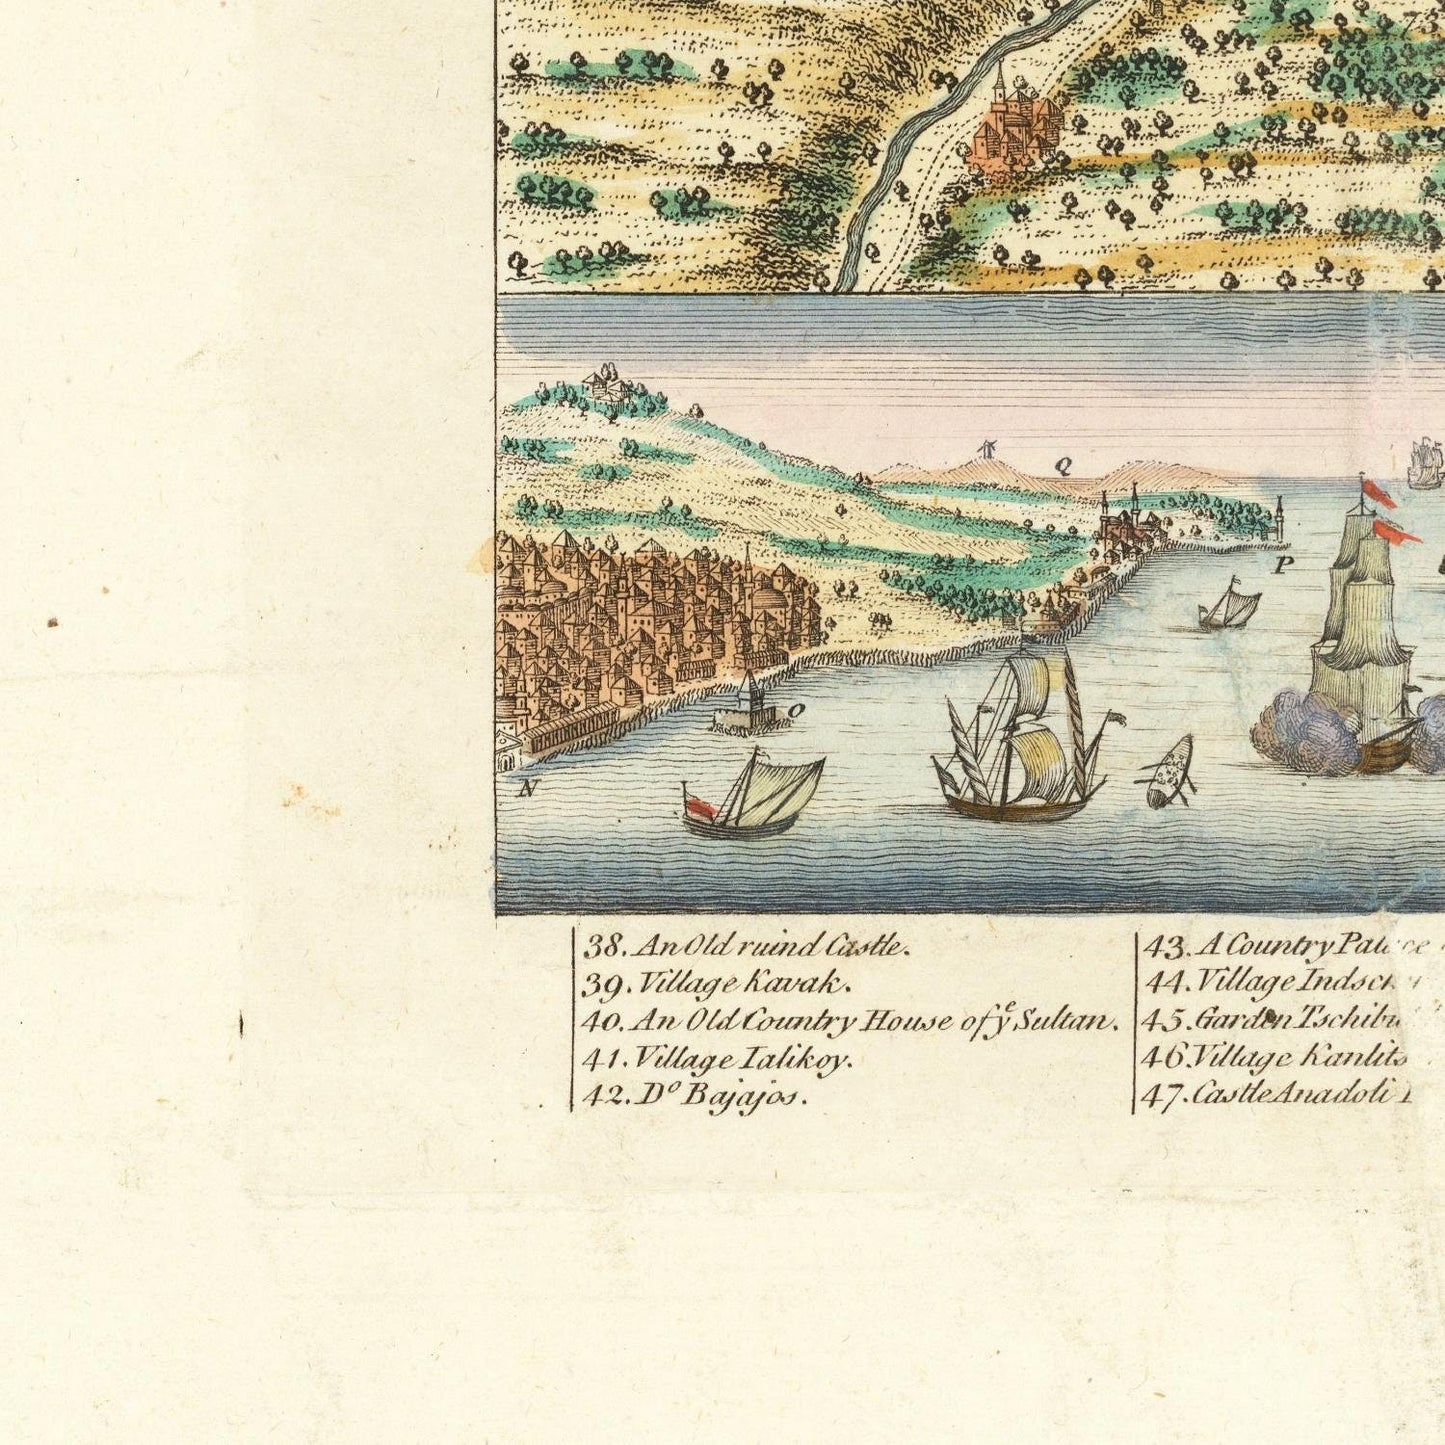 73
Q
P
O
N
38. An Old ruind Castle.
39. Village Kavak.
40. An Old Country House of yᵉ Sultan.
41. Village Ialikoy.
42. Dº Bajajos.
43. A Country Palace
44. Village
45. Garden
46. Village
47. Castle Anadoli